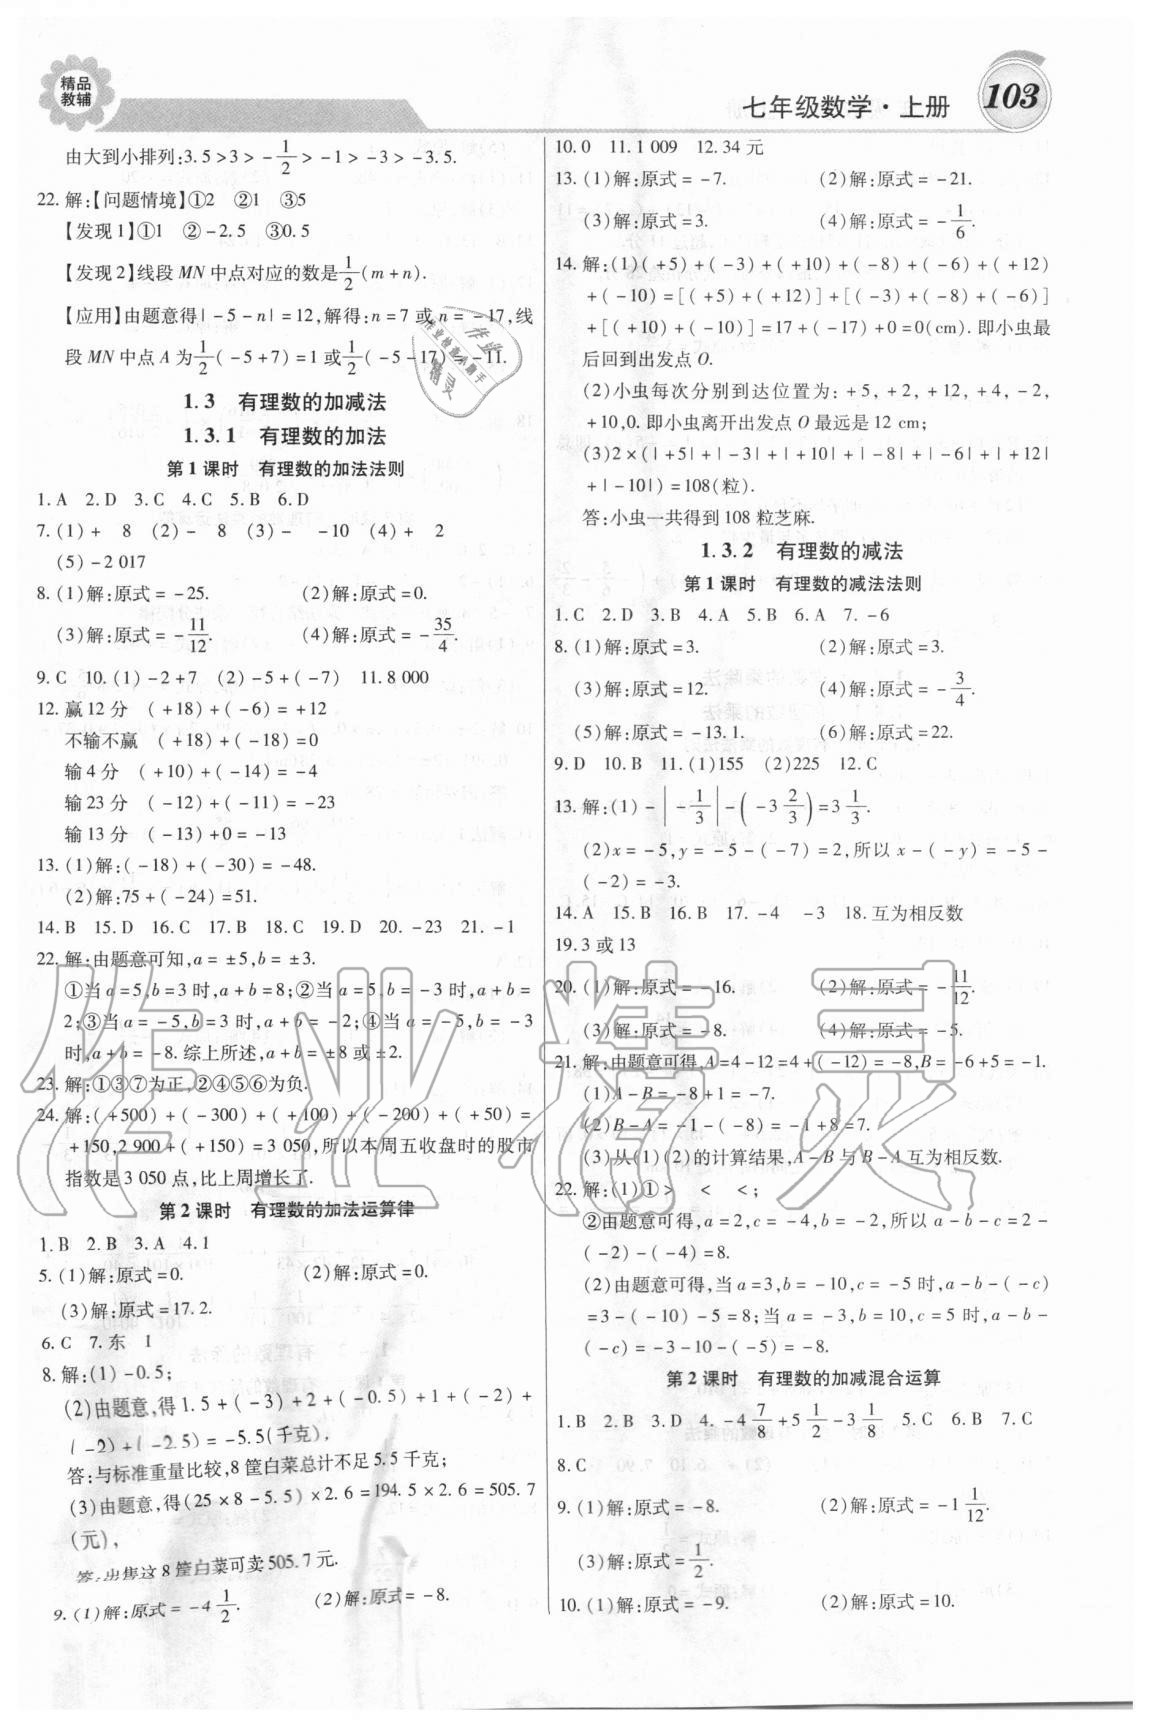 精品
教辅
七年级数学·上册 103
由大到小排列:3.5>3>-1/2>-1>-3>-3.5.
22.解:【问题情境】①2 ②1 ③5
【发现1】①1 ②-2.5 ③0.5
【发现2】线段MN中点对应的数是1/2(m+n).
【应用】由题意得|-5-n|=12,解得:n=7或n=-17,线
段MN中点A为1/2(-5+7)=1或1/2(-5-17)=-11.
1.3 有理数的加减法
1.3.1 有理数的加法
第1课时 有理数的加法法则
1.A 2.D 3.C 4.C 5.B 6.D
7.(1)+ 8 (2)- 8 (3)- -10 (4)+ 2
(5)-2 017
8.(1)解:原式=-25. (2)解:原式=0.
(3)解:原式=-11/12. (4)解:原式=-35/4.
9.C 10.(1)-2+7 (2)-5+(-7) 11.8 000
12.赢12分 (+18)+(-6)=+12
不输不赢 (+18)+(-18)=0
输4分 (+10)+(-14)=-4
输23分 (-12)+(-11)=-23
输13分 (-13)+0=-13
13.(1)解:(-18)+(-30)=-48.
(2)解:75+(-24)=51.
14.B 15.D 16.C 17.B 18.C 19.D 20.-23 21.-1
22.解:由题意可知,a=±5,b=±3.
①当a=5,b=3时,a+b=8;②当a=5,b=-3时,a+b=
2;③当a=-5,b=3时,a+b=-2;④当a=-5,b=-3
时,a+b=-8.综上所述,a+b=±8或±2.
23.解:①③⑦为正,②④⑤⑥为负.
24.解:(+500)+(-300)+(+100)+(-200)+(+50)=
+150,2 900+(+150)=3 050,所以本周五收盘时的股市
指数是3 050点,比上周增长了.
第2课时 有理数的加法运算律
1.B 2.B 3.A 4.1
5.(1)解:原式=0. (2)解:原式=0.
(3)解:原式=17.2.
6.C 7.东 1
8.解:(1)-0.5;
(2)由题意,得1.5+(-3)+2+(-0.5)+1+(-2)+
(-2)+(-2.5)=-5.5(千克),
答:与标准重量比较,8筐白菜总计不足5.5千克;
(3)由题意,得(25×8-5.5)×2.6=194.5×2.6=505.7
(元),
答:出售这8筐白菜可卖505.7元.
9.(1)解:原式=-4 1/2. (2)解:原式=-8.
10.0 11.1 009 12.34元
13.(1)解:原式=-7. (2)解:原式=-21.
(3)解:原式=3. (4)解:原式=-1/6.
14.解:(1)(+5)+(-3)+(+10)+(-8)+(-6)+(+12)
+(-10)=[(+5)+(+12)]+[(-3)+(-8)+(-6)]
+[(+10)+(-10)]=17+(-17)+0=0(cm).即小虫最
后回到出发点O.
(2)小虫每次分别到达位置为:+5,+2,+12,+4,-2,
+10,0.即小虫离开出发点O最远是12 cm;
(3)2×(|+5|+|-3|+|+10|+|-8|+|-6|+|+12|
+|-10|)=108(粒).
答:小虫一共得到108粒芝麻.
1.3.2 有理数的减法
第1课时 有理数的减法法则
1.C 2.D 3.B 4.A 5.B 6.A 7.-6
8.(1)解:原式=3. (2)解:原式=3.
(3)解:原式=12. (4)解:原式=-3/4.
(5)解:原式=-13.1. (6)解:原式=22.
9.D 10.B 11.(1)155 (2)225 12.C
13.解:(1)-|-1/3|-(-3 2/3)=3 1/3.
(2)x=-5,y=-5-(-7)=2,所以x-(-y)=-5-
(-2)=-3.
14.A 15.B 16.B 17.-4 -3 18.互为相反数
19.3或13
20.(1)解:原式=-16. (2)解:原式=-11/12.
(3)解:原式=-8. (4)解:原式=-5.
21.解:由题意可得,A=4-12=4+(-12)=-8,B=-6+5=-1.
(1)A-B=-8+1=-7.
(2)B-A=-1-(-8)=-1+8=7.
(3)从(1)(2)的计算结果,A-B与B-A互为相反数.
22.解:(1)①> < <;
②由题意可得,a=2,c=-4,b=-2,所以a-b-c=2-
(-2)-(-4)=8.
(2)由题意可得,当a=3,b=-10,c=-5时,a-b-(-c)
=3-(-10)-5=8;当a=-3,b=10,c=5时,a-b-
(-c)=-3-10-(-5)=-8.
第2课时 有理数的加减混合运算
1.B 2.B 3.D 4.-4 7/8+5 1/2-3 1/8 5.C 6.B 7.C
8.C
9.(1)解:原式=-8. (2)解:原式=-1 1/12.
(3)解:原式=1/2.
10.(1)解:原式=-9. (2)解:原式=10.
作业精灵